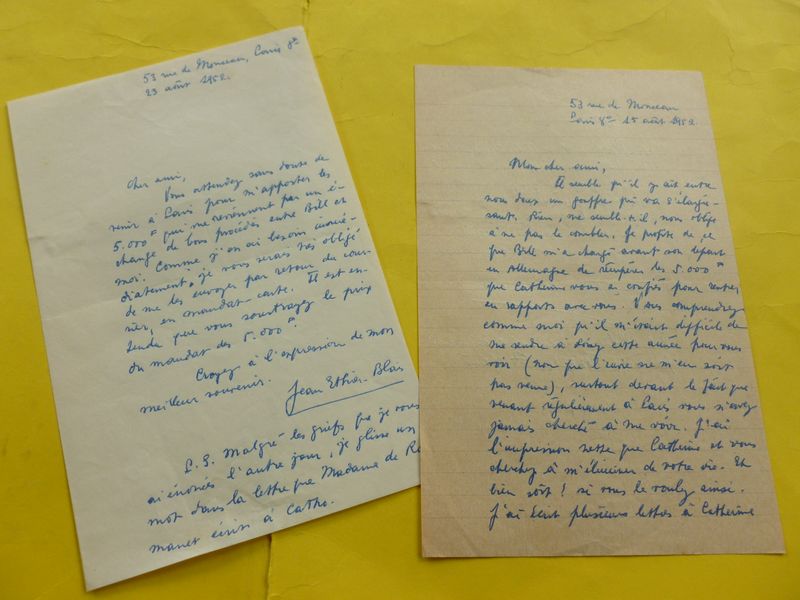 53 rue de Monceau, Paris 8e
23 août 1952.
Cher ami,
Vous attendez sans doute de
venir à Paris pour m'apporter les
5.000 F qui me reviennent par un é-
change de bons procédés entre Bill et
moi. Comme j'en ai besoin immé-
diatement, je vous serais très obligé
de me les envoyer par retour du cour-
rier, en mandat-carte. Il est en-
tendu que vous soustrayez le prix
du mandat des 5.000 F.
Croyez à l'expression de mon
meilleur souvenir.
Jean Ethier-Blais
P.S. Malgré les griefs que je vous
ai énoncés l'autre jour, je glisse un
mot dans la lettre que Madame de
manet écrit à Catho.
53 rue de Monceau
Paris 8e 15 août 1952.
Mon cher ami,
Il semble qu'il y ait entre
nous deux un gouffre qui va s'élargis-
sant. Rien, me semble-t-il, nous oblige
à ne pas le combler. Je profite de ce
que Bill m'a chargé avant son départ
en Allemagne de récupérer les 5.000 F
que Catherine vous a confiés pour rentrer
en rapports avec vous. Vous comprendrez
comme moi qu'il m'était difficile de
me rendre à cette année pour vous
voir (non que l'envie ne m'en soit
pas venue), surtout devant le fait que
venant régulièrement à Paris vous n'avez
jamais cherché à me voir. J'ai
l'impression nette que Catherine et vous
cherchez à m'éliminer de votre vie. Et
bien soit! si vous le voulez ainsi.
J'ai écrit plusieurs lettres à Catherine